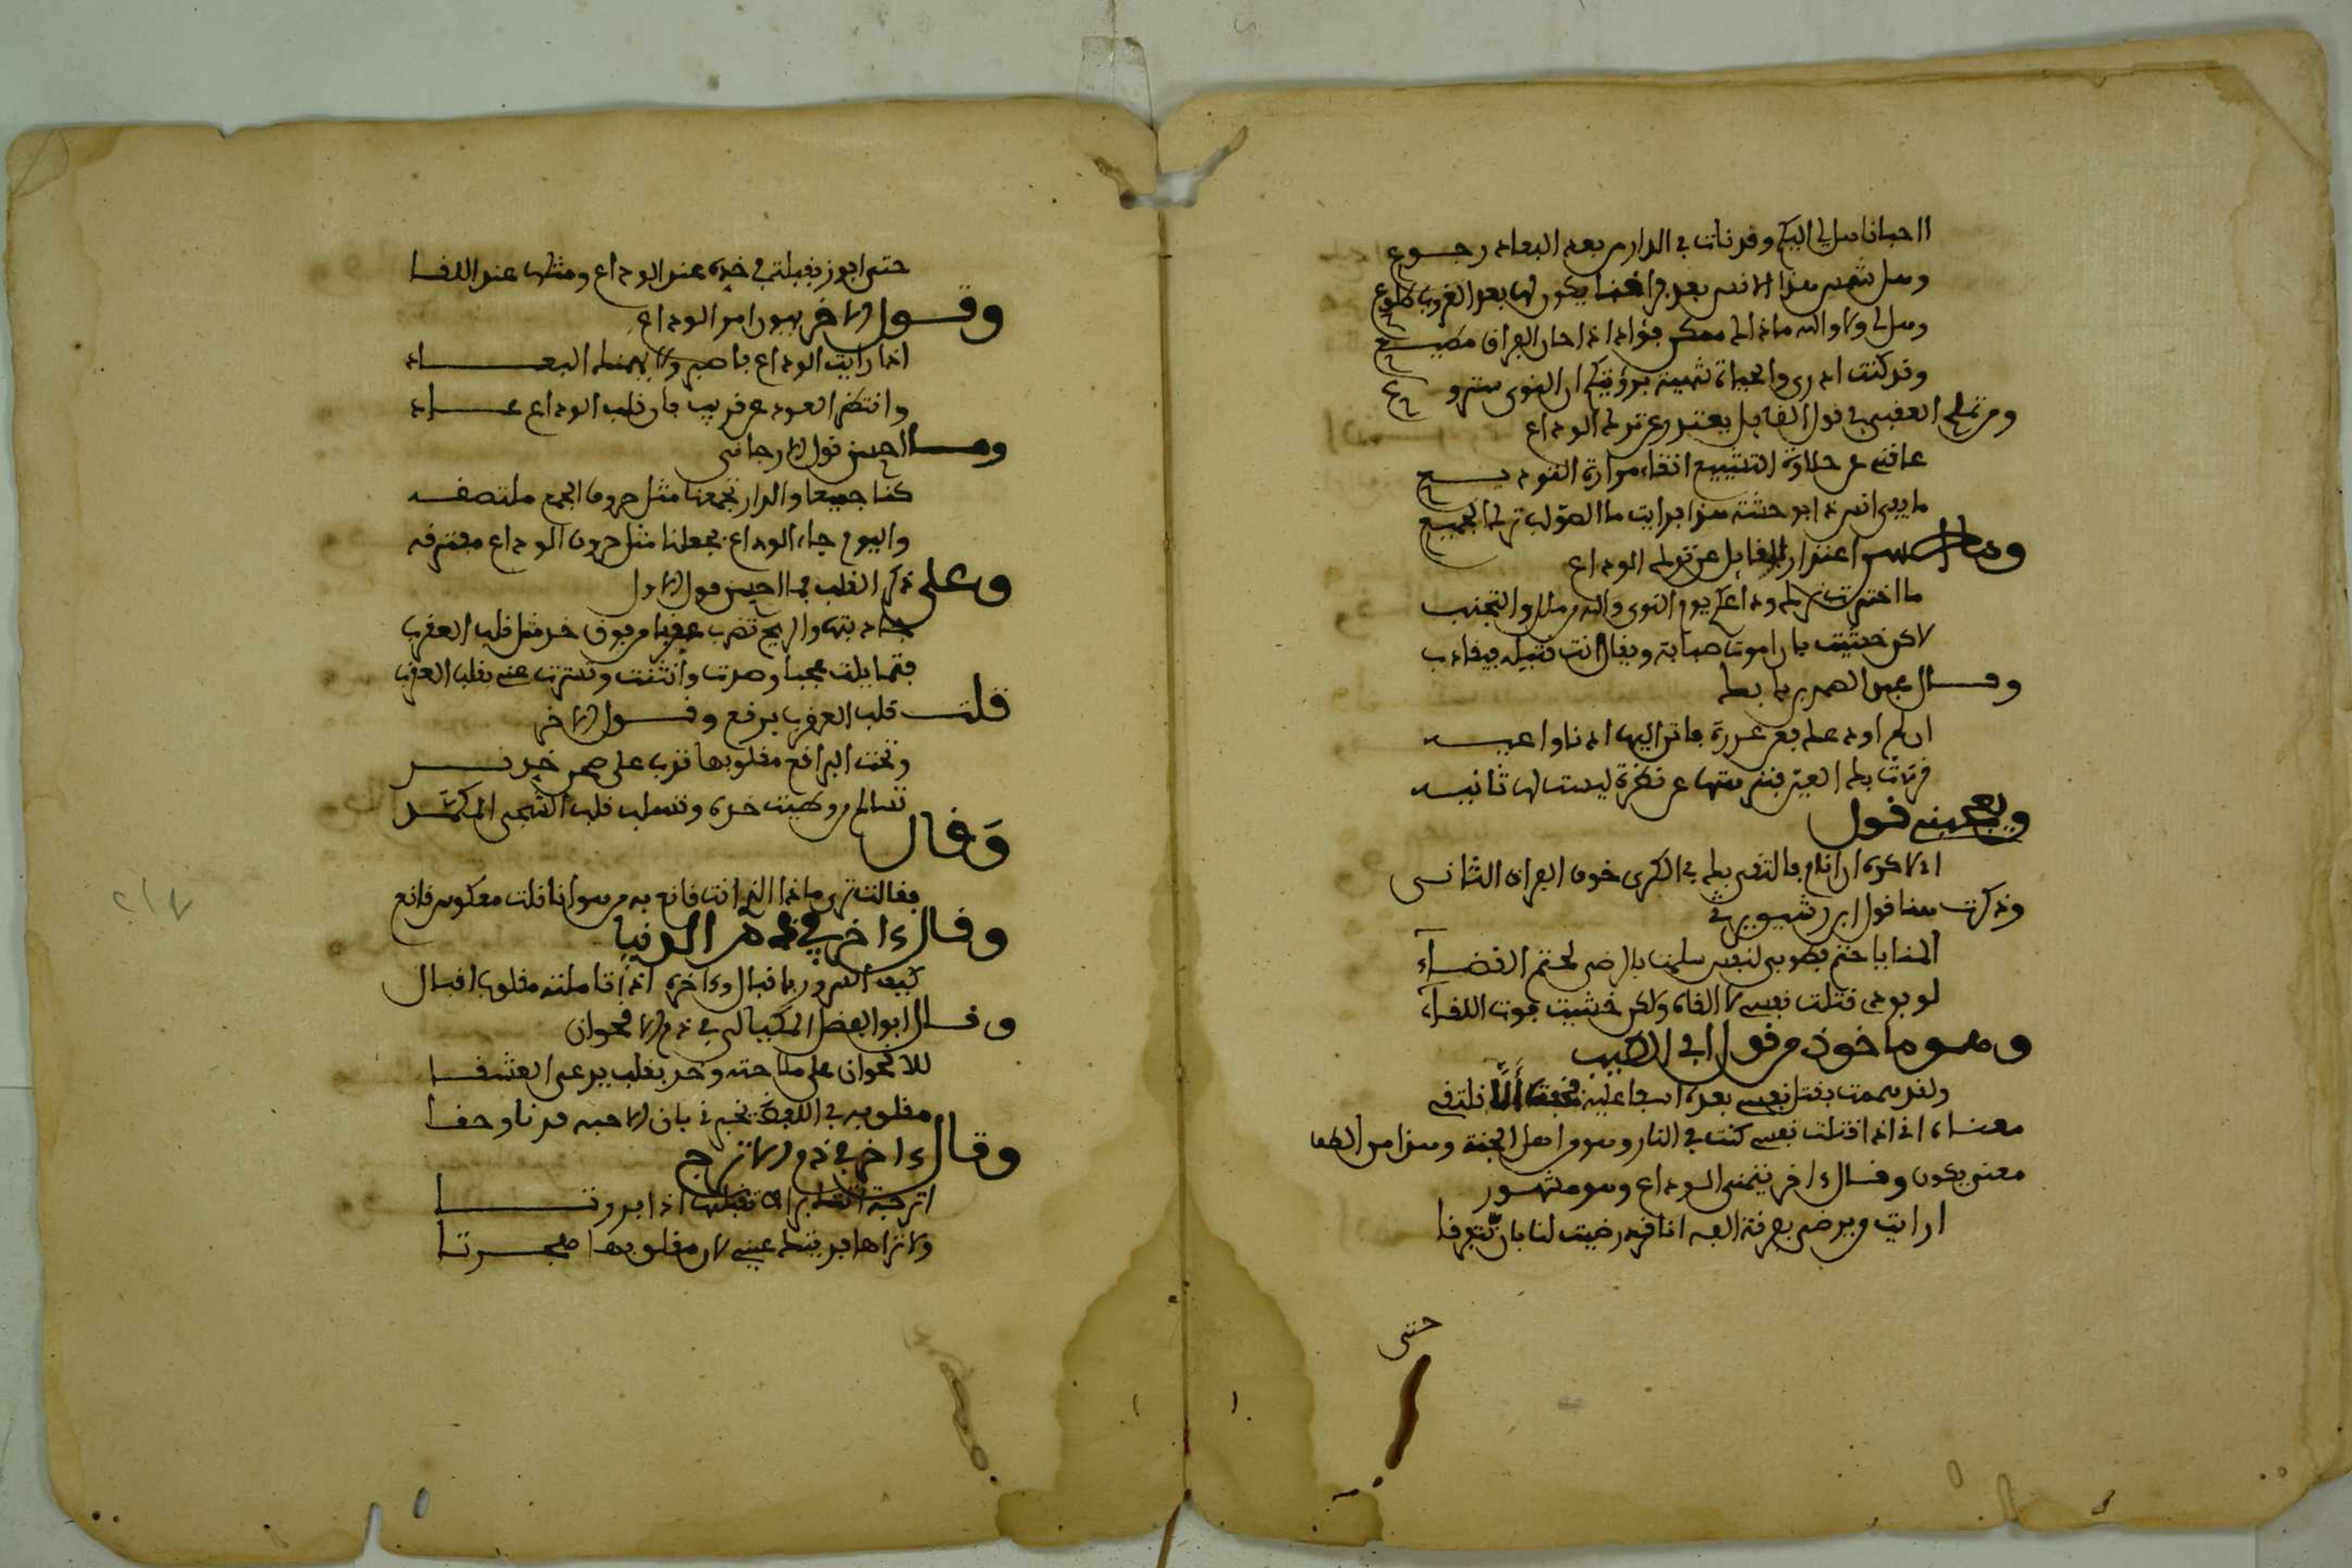 ااحبابنا هل لي اليكم وقد نات بي الدار من بعد البعاد رجوع
وهل لشمس هذا الانس بعد فراقنا يكون لها بعد الغروب طلوع
وهل لي ولا والله ماذا لي ممكن فؤاد اذا حان الفراق مطيع
وقد كنت ادري والحياة شهية برؤيتكم ان النوى سترو ع
ومن تملح العفيف في قول القايل يعتذر عن ترك الوداع
عاقني عن حلاوة التشييع اتقاء مرارة التوديع
ما يفي انس ذا بوحشة هذا فرايت الصواب ترك الجميع
وما احسن اعتذار القايل عن ترك الوداع
ما اخترت ترك وداعكم يوم النوى والله من ملل ولا لتجنب
لاكن خشيت بان اموت صبابة ويقال انت قتيله فيقاد ب
وقال عبد الصمد بن بابك
ان لم اودعك فعن عذرة فاثن اليها اذنا واعيه
قرت بك العين فنزهتها عن نظرة ليست لها ثانيه
ويعجبني قول
اذ لا كره ان انام فالتقي بك في الكرى خوف الفراق الثاني
وذكرت هنا قول ابن رشيق في
المنايا حتم فطوبى لنفس سلمت بالرضى لحتم القضاء
لو بودي قتلت نفسي لالقاه ولكن خشيت فوت اللقاء
وهو ماخوذ من قول ابي الطيب
ولقد هممت بقتل نفسي بعده اسفا عليه فخفت الا نلتقي
معناه اني اذا قتلت نفسي كنت في النار وهو من اهل الجنة وهذا من الطف
معنى يكون وقال اخر يتمنى الوداع وهو مشهور
ارايت من يرضى بفرقة الفه انا قد رضيت لنا بان نتفرقا
حتى
حتى افوز بقبلة في خده عند الوداع ومثلها عند اللقا
وقول الاخر يهون امر الوداع
اذا رايت الوداع فاصبر ولا يهمنك البعاد
وانتظر العود عن قريب فان قلب الوداع عادوا
وما احسن قول الارجاني
كنا جميعا والدار تجمعنا مثل حروف الجمع ملتصقه
واليوم جاء الوداع يجعلنا مثل حروف الوداع مفترقه
وعلى ذكر القلب فما احسن قول الاول
جاذبتها والريح تضرب عقربا من فوق خد مثل قلب العقرب
فتمايلت عجبا وصدت وانثنت وتسترت عني بقلب العقرب
قلت قلب العقرب برقع وقول الاخر
وتحت البراقع مقلوبها تدب على صحن خد ند
تسالم من وطئت خده وتسلب قلب الشجي المكمد
وقال
فقالت ترى ماذا الذي انت قانع به من هوانا قلت معكوس قانع
وقال ءاخر في ذم الدنيا
كيف السرور باقبال وءاخره اذا تاملته مقلوب اقبال
وقال ابو الفضل الميكالي في ذم الاقحوان
للاقحوان على ملاحته وخز بقلب يرعى العشقا
مقلوبه في اللفظ يخبرني بان الاحبه قد ناوا حقا
وقال ءاخر في ذم الاترج
اترجة اياك تقبلها اذا بروتا
ولا تراها فديتك عيني لان مقلوبها هجرتا